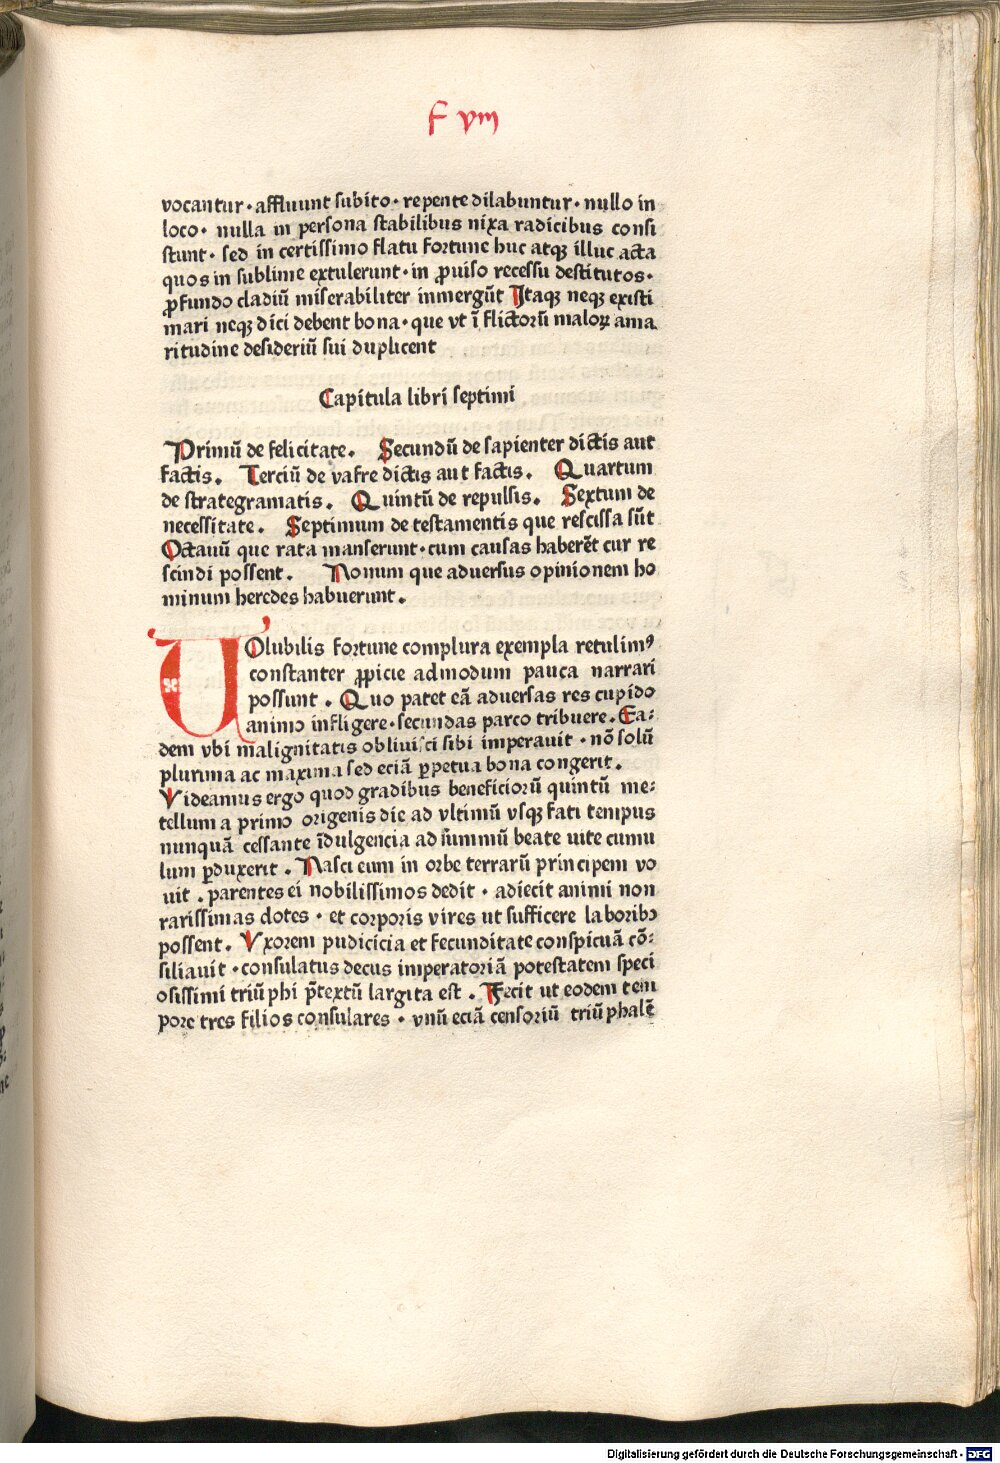 F vm
vocantur · affluunt subito · repente dilabuntur · nullo in
loco · nulla in persona stabilibus nixa radicibus consi
stunt · sed in certissimo flatu fortune huc atqꝫ illuc acta
quos in sublime extulerunt · in ꝓuiso recessu destitutos ·
ꝓfundo cladiū miserabiliter inmergūt Itaqꝫ neqꝫ existi
mari neqꝫ dici debent bona · que vt ī flictorū maloꝝ ama
ritudine desideriū sui duplicent
Capitula libri septimi
Primū de felicitate . Secundū de sapienter dictis aut
factis . Terciū de vafre dictis aut factis . Quartum
de strategramatis . Quintū de repulsis . Sextum de
necessitate . Septimum de testamentis que rescissa sūt
Octauū que rata manserunt · cum causas haberēt cur re
scindi possent . Nonum que aduersus opinionem ho
minum heredes habuerunt .
UOlubilis fortune complura exempla retulimꝰ
constanter ꝓpicie admodum pauca narrari
possunt . Quo patet eā aduersas res cupido
animo infligere · secundas parco tribuere . Ea:
dem vbi malignitatis obliuisci sibi imperauit · nō solū
plurima ac maxima sed eciā ꝑpetua bona congerit .
Videamus ergo quod gradibus beneficiorū quintū me:
tellum a primo origenis die ad vltimū vsqꝫ fati tempus
nunquā cessante īdulgencia ad summū beate uite cumu
lum ꝑduxerit . Nasci eum in orbe terrarū principem vo
uit . parentes ei nobilissimos dedit · adiecit animi non
rarissimas dotes · et corporis vires ut sufficere laboribꝫ
possent . Vxorem pudicicia et fecunditate conspicuā cō:
siliauit · consulatus decus imperatoriā potestatem speci
osissimi triūphi p̄textū largita est . Fecit ut eodem tem
pore tres filios consulares · vnū eciā censoriū triūphalē
Digitalisierung gefördert durch die Deutsche Forschungsgemeinschaft - DFG